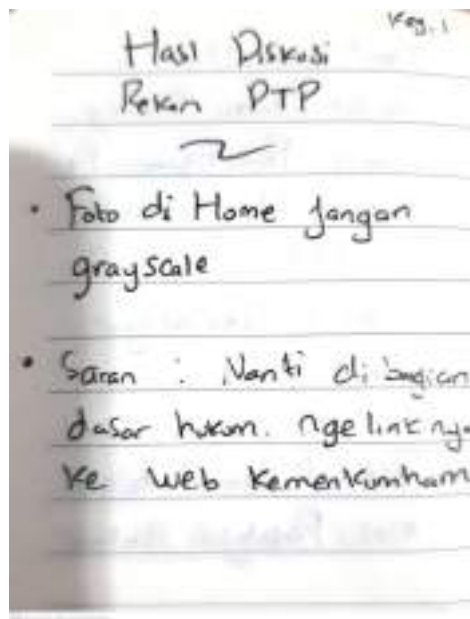 Keg. 1
Hasl Diskusi
Rekan PTP
• Foto di Home jangan
grayscale
• Saran : Nanti di bagian
dasar hukum. ngelinknya
ke web kemenkumham